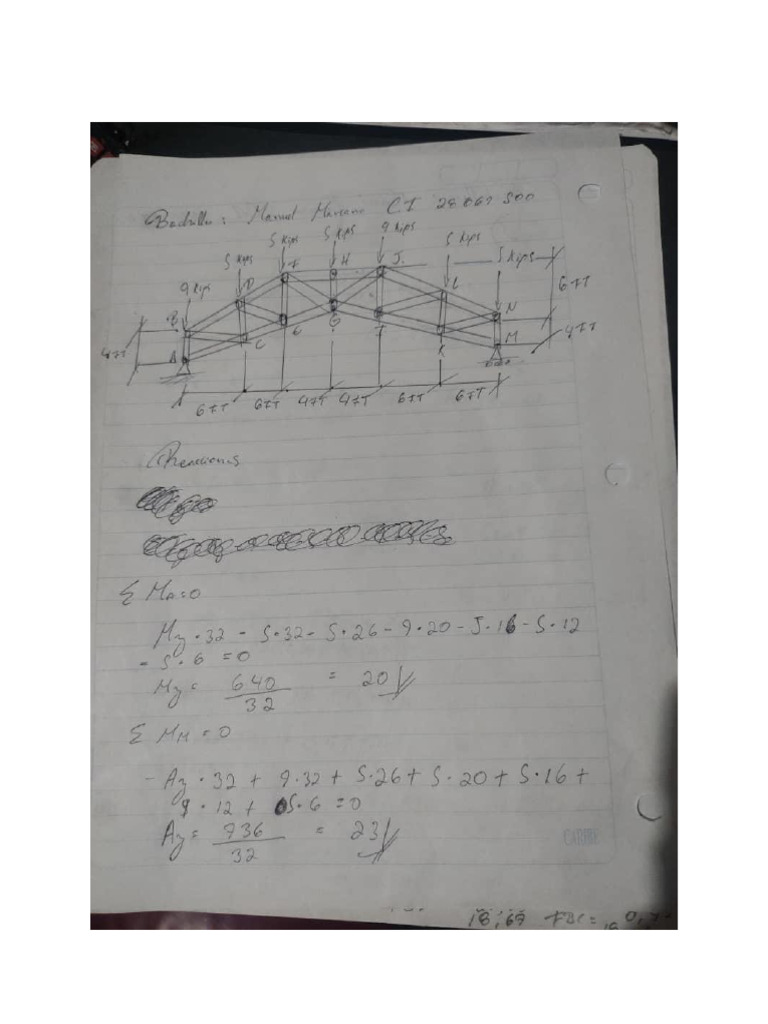 Bachiller: Manuel Marcano C.I 28 067 500
5 Kips 9 Kips
5 Kips 5 Kips
5 Kips F H J L 5 Kips
9 Kips D 6FT
B N
4FT G I M 4FT
A C E K
6FT 6FT 4FT 4FT 6FT 6FT
Reacciones
Σ MA=0
My•32 - 5•32 - 5•26 - 9•20 - 5•16 - 5•12
- 5•6 =0
My= 640/32 = 20
Σ MM=0
- Ay•32 + 9•32 + 5•26 + 5•20 + 5•16 +
9•12 + 5•6 =0
Ay= 736/32 = 23
18,67 FBC=